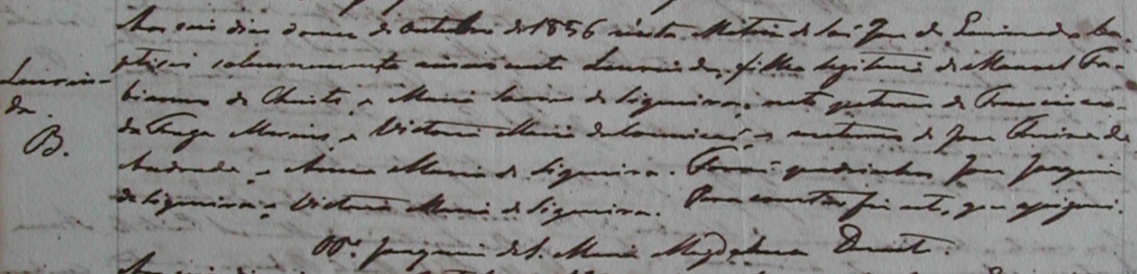 Aos seis dias do mez de Outubro de 1856 nesta Matriz de São José de
baptisei solemnemente a Laurinda, filha legitima de Manoel Fabianno
Laurinda.
de Christo, e Maria de Siqueira, neta paterna de Francisco
da Veiga Marins, e Victoria Maria da Conceição, e materna de José
B.
Andrade, e Anna Maria de Siqueira. Foram padrinhos José Joaquim
de Siqueira, e Victoria Maria de Siqueira. Para constar fiz este, que assignei.
Joaquim de S. Maria Magdalena Duarte.